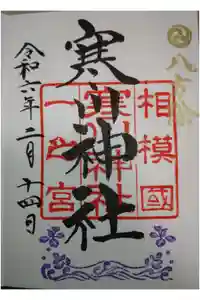 八方除
相模國
寒川神社
寒川神社
一之宮
令和六年二月十四日